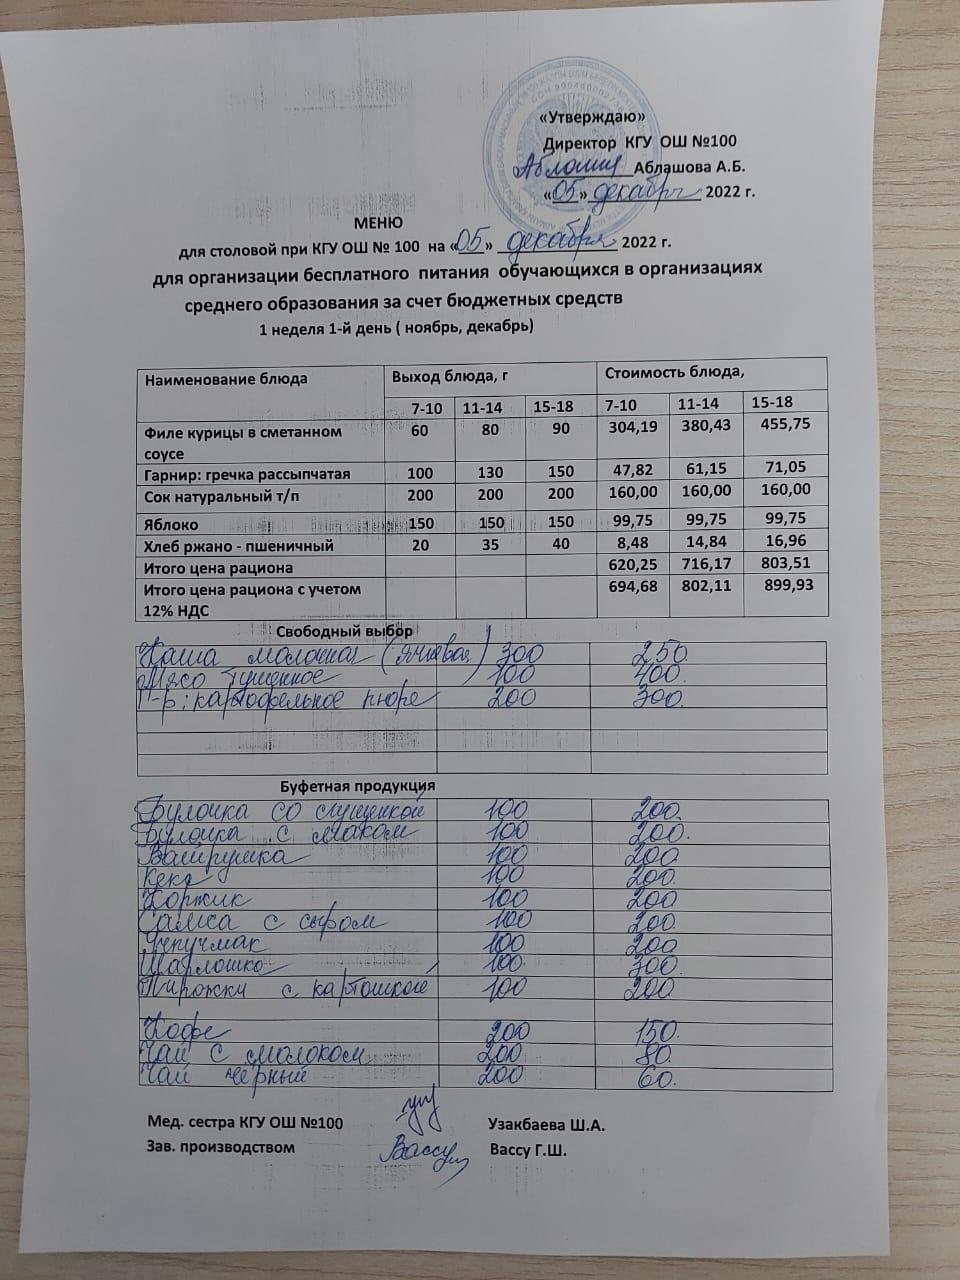 «Утверждаю»
Директор КГУ ОШ №100
Аблашова А.Б.
«05» декабря 2022 г.
МЕНЮ
для столовой при КГУ ОШ № 100 на «05» декабря 2022 г.
для организации бесплатного питания обучающихся в организациях
среднего образования за счет бюджетных средств
1 неделя 1-й день ( ноябрь, декабрь)
Наименование блюда Выход блюда, г Стоимость блюда,
7-10 11-14 15-18 7-10 11-14 15-18
Филе курицы в сметанном 60 80 90 304,19 380,43 455,75
соусе
Гарнир: гречка рассыпчатая 100 130 150 47,82 61,15 71,05
Сок натуральный т/п 200 200 200 160,00 160,00 160,00
Яблоко 150 150 150 99,75 99,75 99,75
Хлеб ржано - пшеничный 20 35 40 8,48 14,84 16,96
Итого цена рациона 620,25 716,17 803,51
Итого цена рациона с учетом 694,68 802,11 899,93
12% НДС
Свободный выбор
Каша молочная (ячневая) 300 250.
Мясо тушенное 100 400.
Г-р: картофельное пюре 200 300.
Буфетная продукция
Булочка со сгущенкой 100 200.
Булочка с маком 100 200.
Ватрушка 100 200
Кекс 100 200.
Коржик 100 200
Самса с сыром 100 200.
Учпучмак 100 200
Шарлотка 100 300.
Пирожки с картошкой 100 200
Кофе 200 150.
Чай с молоком 200 80.
Чай черный 200 60.
Мед. сестра КГУ ОШ №100 Узакбаева Ш.А.
Зав. производством Вассу Вассу Г.Ш.